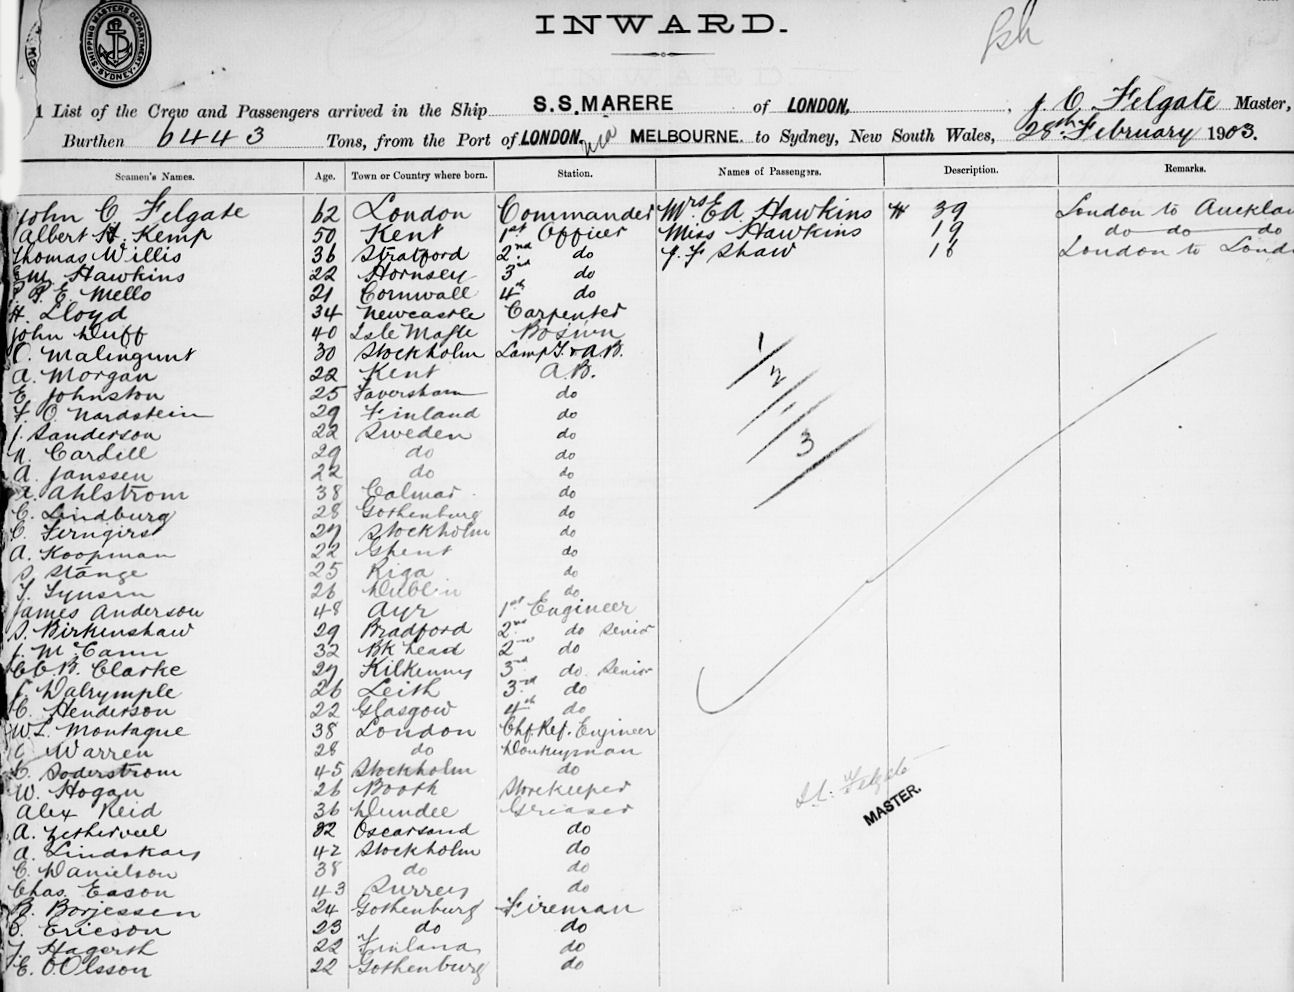 INWARD.
SHIPPING MASTERS DEPARTMENT SYDNEY
List of the Crew and Passengers arrived in the Ship S.S. MARERE of LONDON, J. C. Felgate Master,
Burthen 6443 Tons, from the Port of LONDON. via MELBOURNE. to Sydney, New South Wales, 28th February 1903.
Seamen's Names. Age. Town or Country where born. Station. Names of Passengers. Description. Remarks.
John C. Felgate 62 London Commander Mrs E A Hawkins 39 London to
Albert H. Kemp 50 Kent 1st Officer Miss Hawkins 19 do do do
Thomas Willis 36 Stratford 2nd do J. F Shaw London to
Hawkins 22 Hornsey 3rd do
P. E Mello 21 Cornwall 4th do
H. Lloyd 34 Newcastle Carpenter
John Duff 40 Isle Bosiun
O. Malingunt 30 Stockholm Lamp T. & A.B.
A. Morgan 22 Kent A.B.
E Johnston 25 Faversham do
F. O. Nardstein 29 Finland do
J. Sanderson 22 Sweden do
Cardell 29 do do
A. Janssen 22 do do
Ahlstrom 38 Calmar do
C. Lindburg 28 Gothenburg do
C. 29 Stockholm do
A. Koopman 22 Ghent do
Stange 25 Riga do
26 Dublin do
James Anderson 48 Ayr 1st Engineer
S. Birkenshaw 29 Bradford 2nd do Senior
J. McCann 32 Bk head 2nd do
C.C.B. Clarke 29 Kilkenny 3rd do. Senior
Dalrymple 26 Leith 3rd do
C. Henderson 22 Glasgow 4th do
W.L. Montague 38 London Chf. Ref. Engineer
C Warren 28 do Donkeyman
C. Soderstrom 45 Stockholm do
W. Hogan 26 Booth Storekeeper
Alex Reid 36 Dundee Greaser
A. do
A. 42 Stockholm do
C. Danielson 38 do do
Chas. Eason 43 Surrey do
B. Borjessen 24 Gothenburg Fireman
Ericson 23 do do
Hagerth 22 Finland do
E. O Olsson 22 Gothenburg do
1
2
3
Felgate
MASTER.